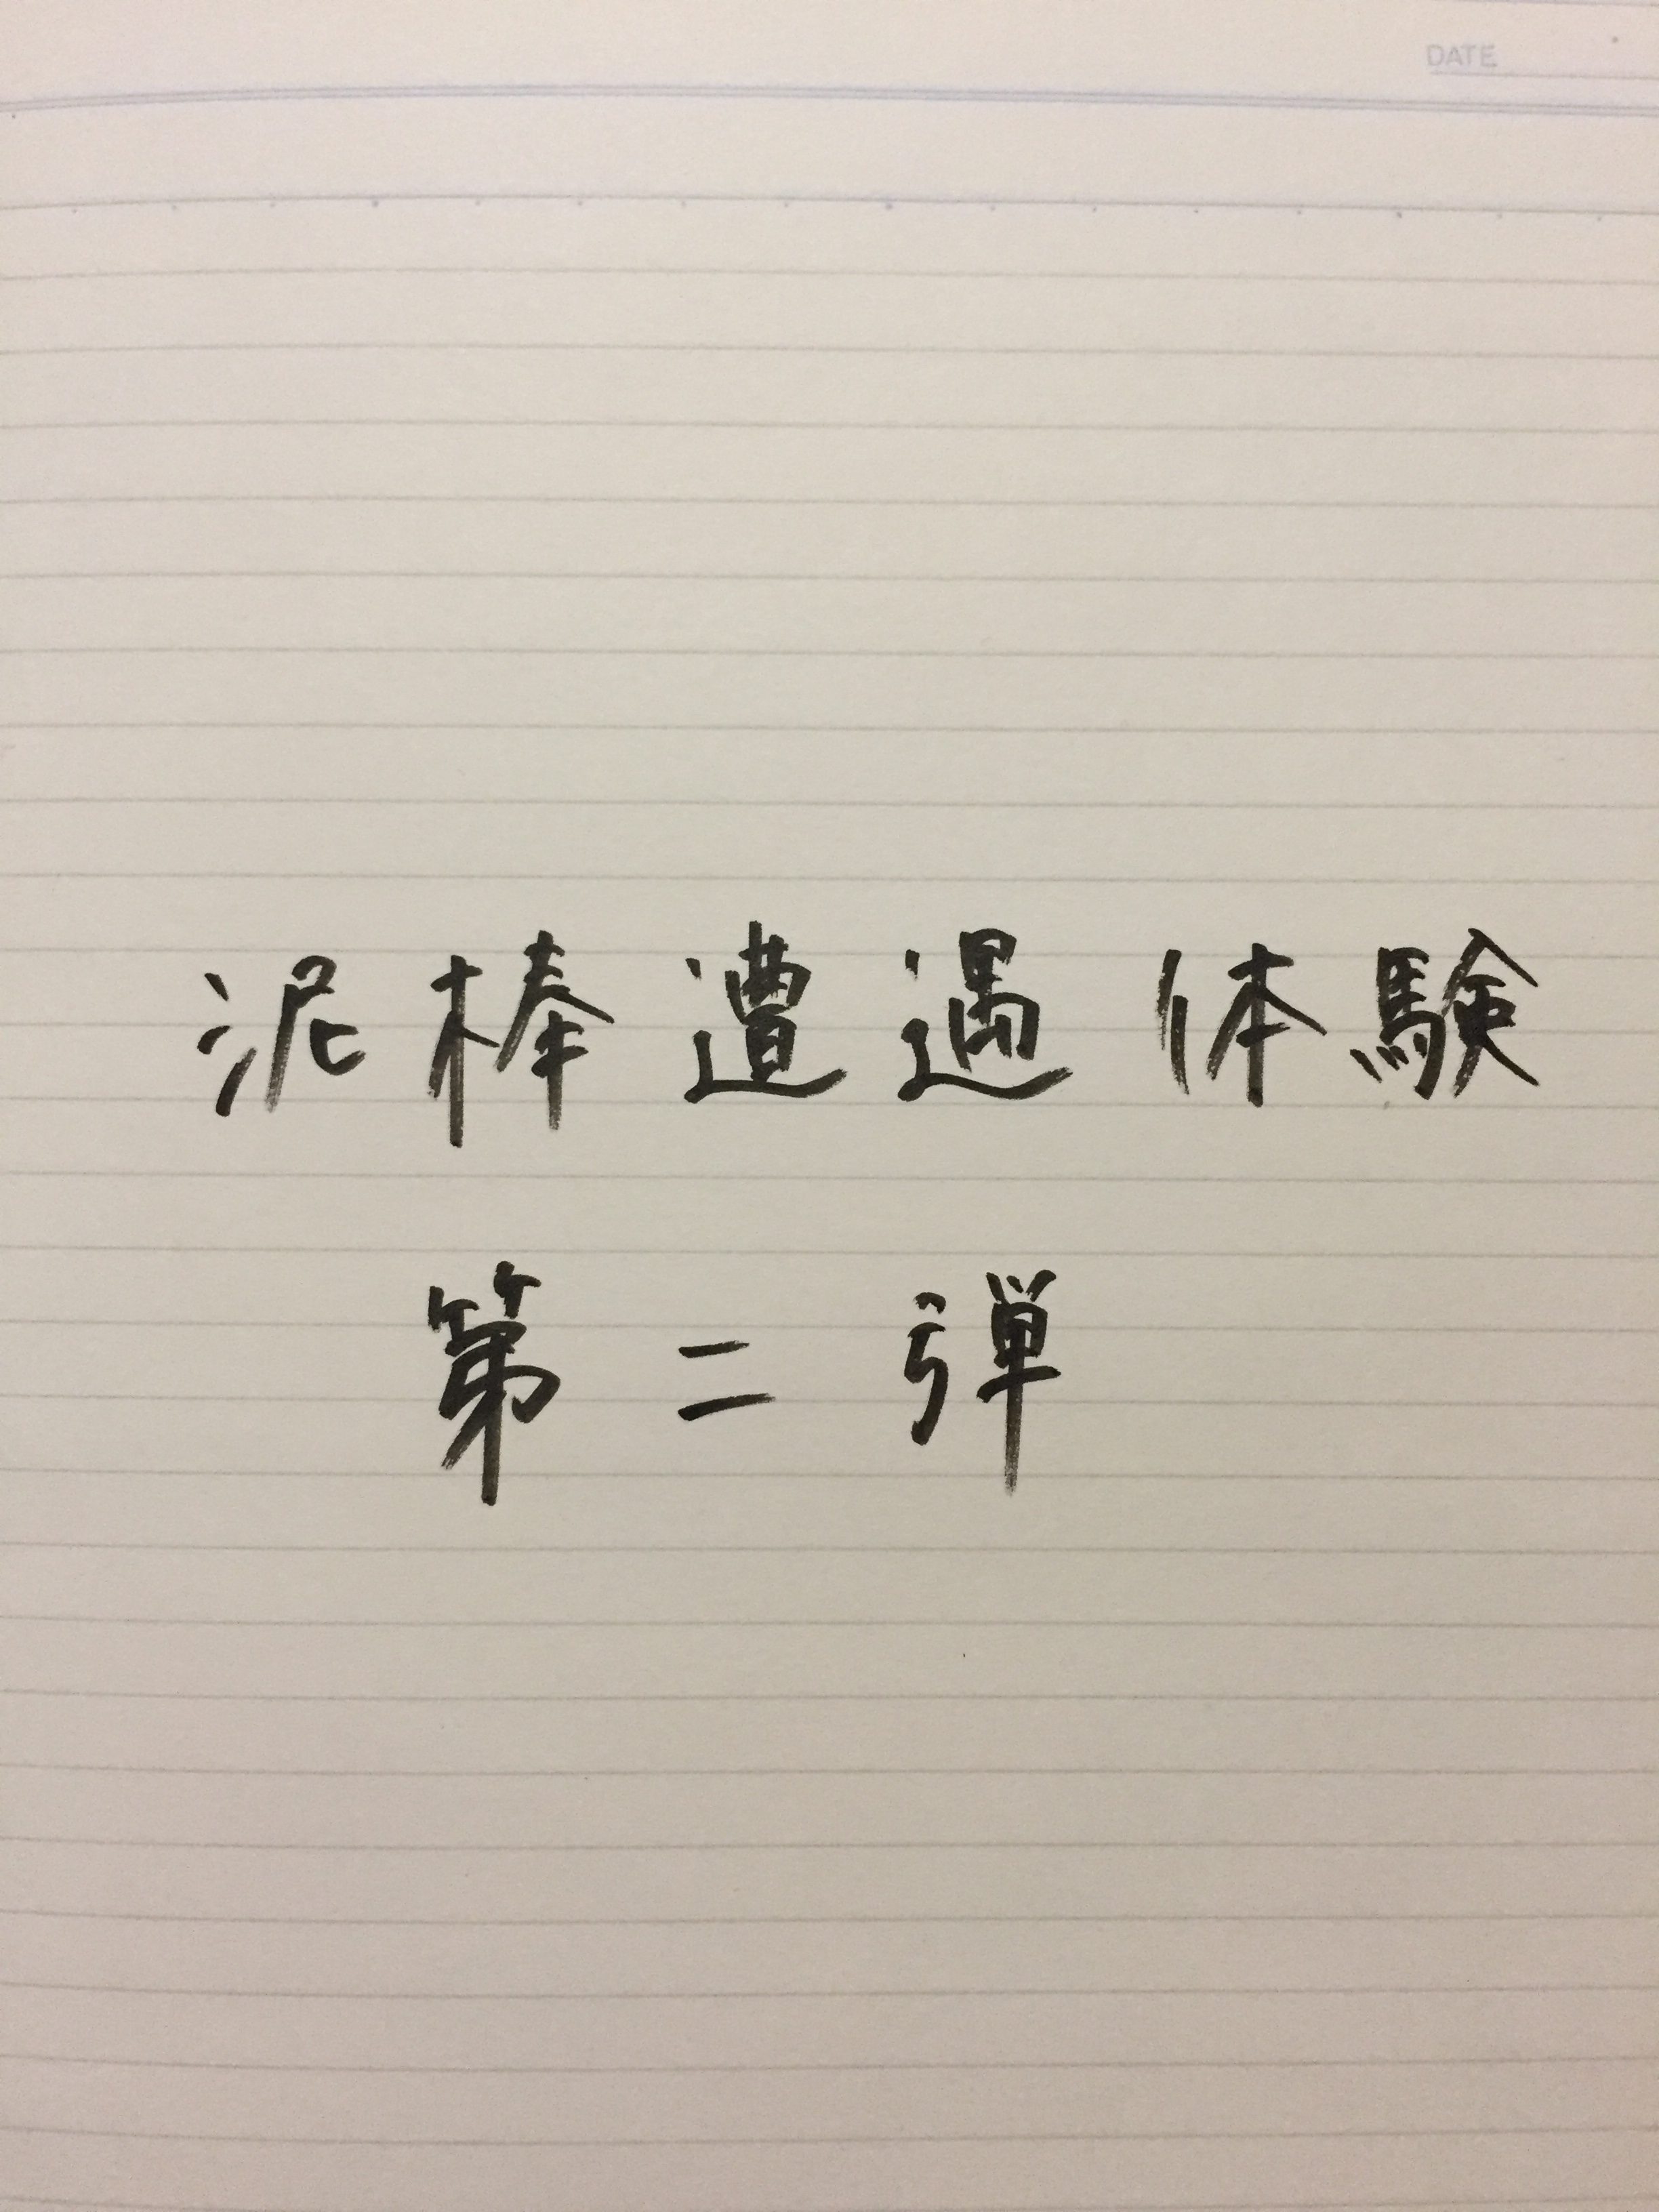 DATE
泥棒遭遇体験
第二弾